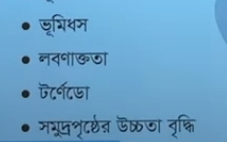 • ভূমিধস
• লবণাক্ততা
• টর্ণেডো
• সমুদ্রপৃষ্ঠের উচ্চতা বৃদ্ধি